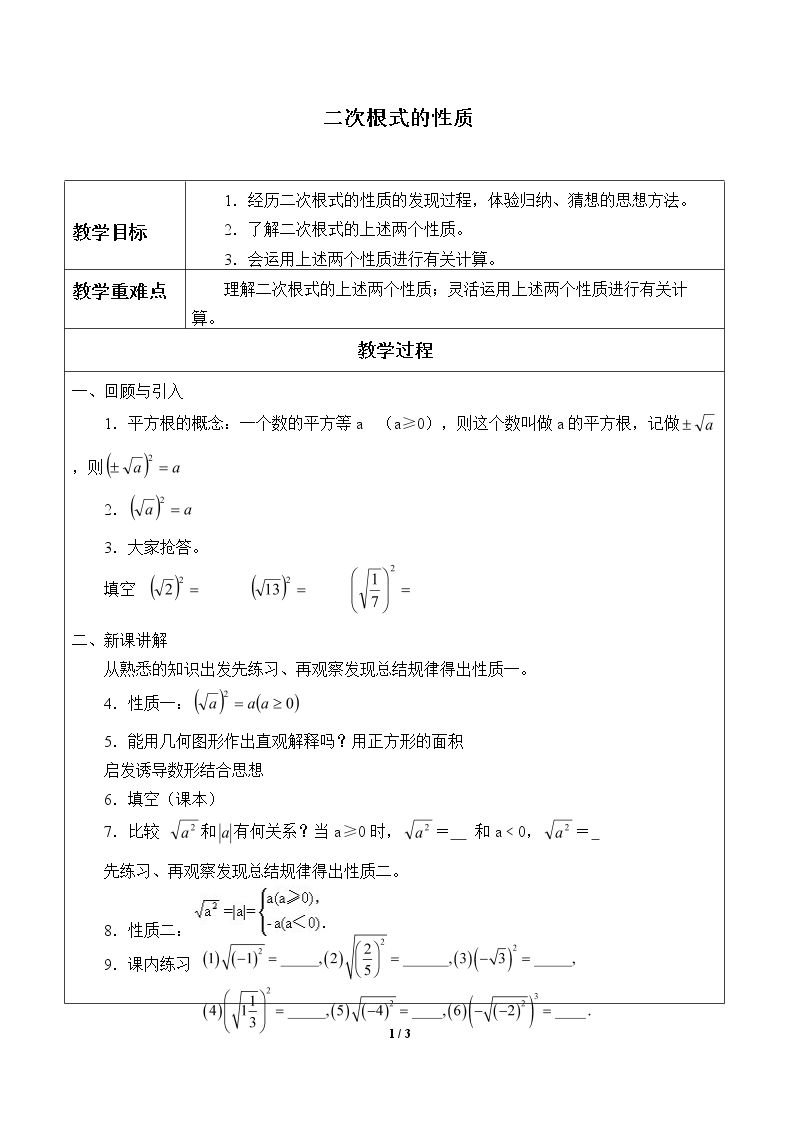 二次根式的性质
教学目标
1．经历二次根式的性质的发现过程，体验归纳、猜想的思想方法。
2．了解二次根式的上述两个性质。
3．会运用上述两个性质进行有关计算。
教学重难点
理解二次根式的上述两个性质；灵活运用上述两个性质进行有关计
算。
教学过程
一、回顾与引入
1．平方根的概念：一个数的平方等 a （a≥0），则这个数叫做 a 的平方根，记做 ±√a
，则 (±√a)² = a
2．(√a)² = a
3．大家抢答。
填空 (√2)² = (√13)² = (√(1/7))² =
二、新课讲解
从熟悉的知识出发先练习、再观察发现总结规律得出性质一。
4．性质一：(√a)² = a(a ≥ 0)
5．能用几何图形作出直观解释吗？用正方形的面积
启发诱导数形结合思想
6．填空（课本）
7．比较 √a² 和 |a| 有何关系？当 a≥0 时， √a² ＝__ 和 a﹤0， √a² ＝_
先练习、再观察发现总结规律得出性质二。
8．性质二： √a² =|a|= { a(a≥0)， -a(a＜0)．
9．课内练习 (1)√(-1)² = _____,(2)√(2/5)² = ______,(3)(-√3)² = _____,
(4)(√(1 1/3))² = _____,(5)√(-4)² = ____,(6)(-√(-2)²)³ = ____.
1 / 3